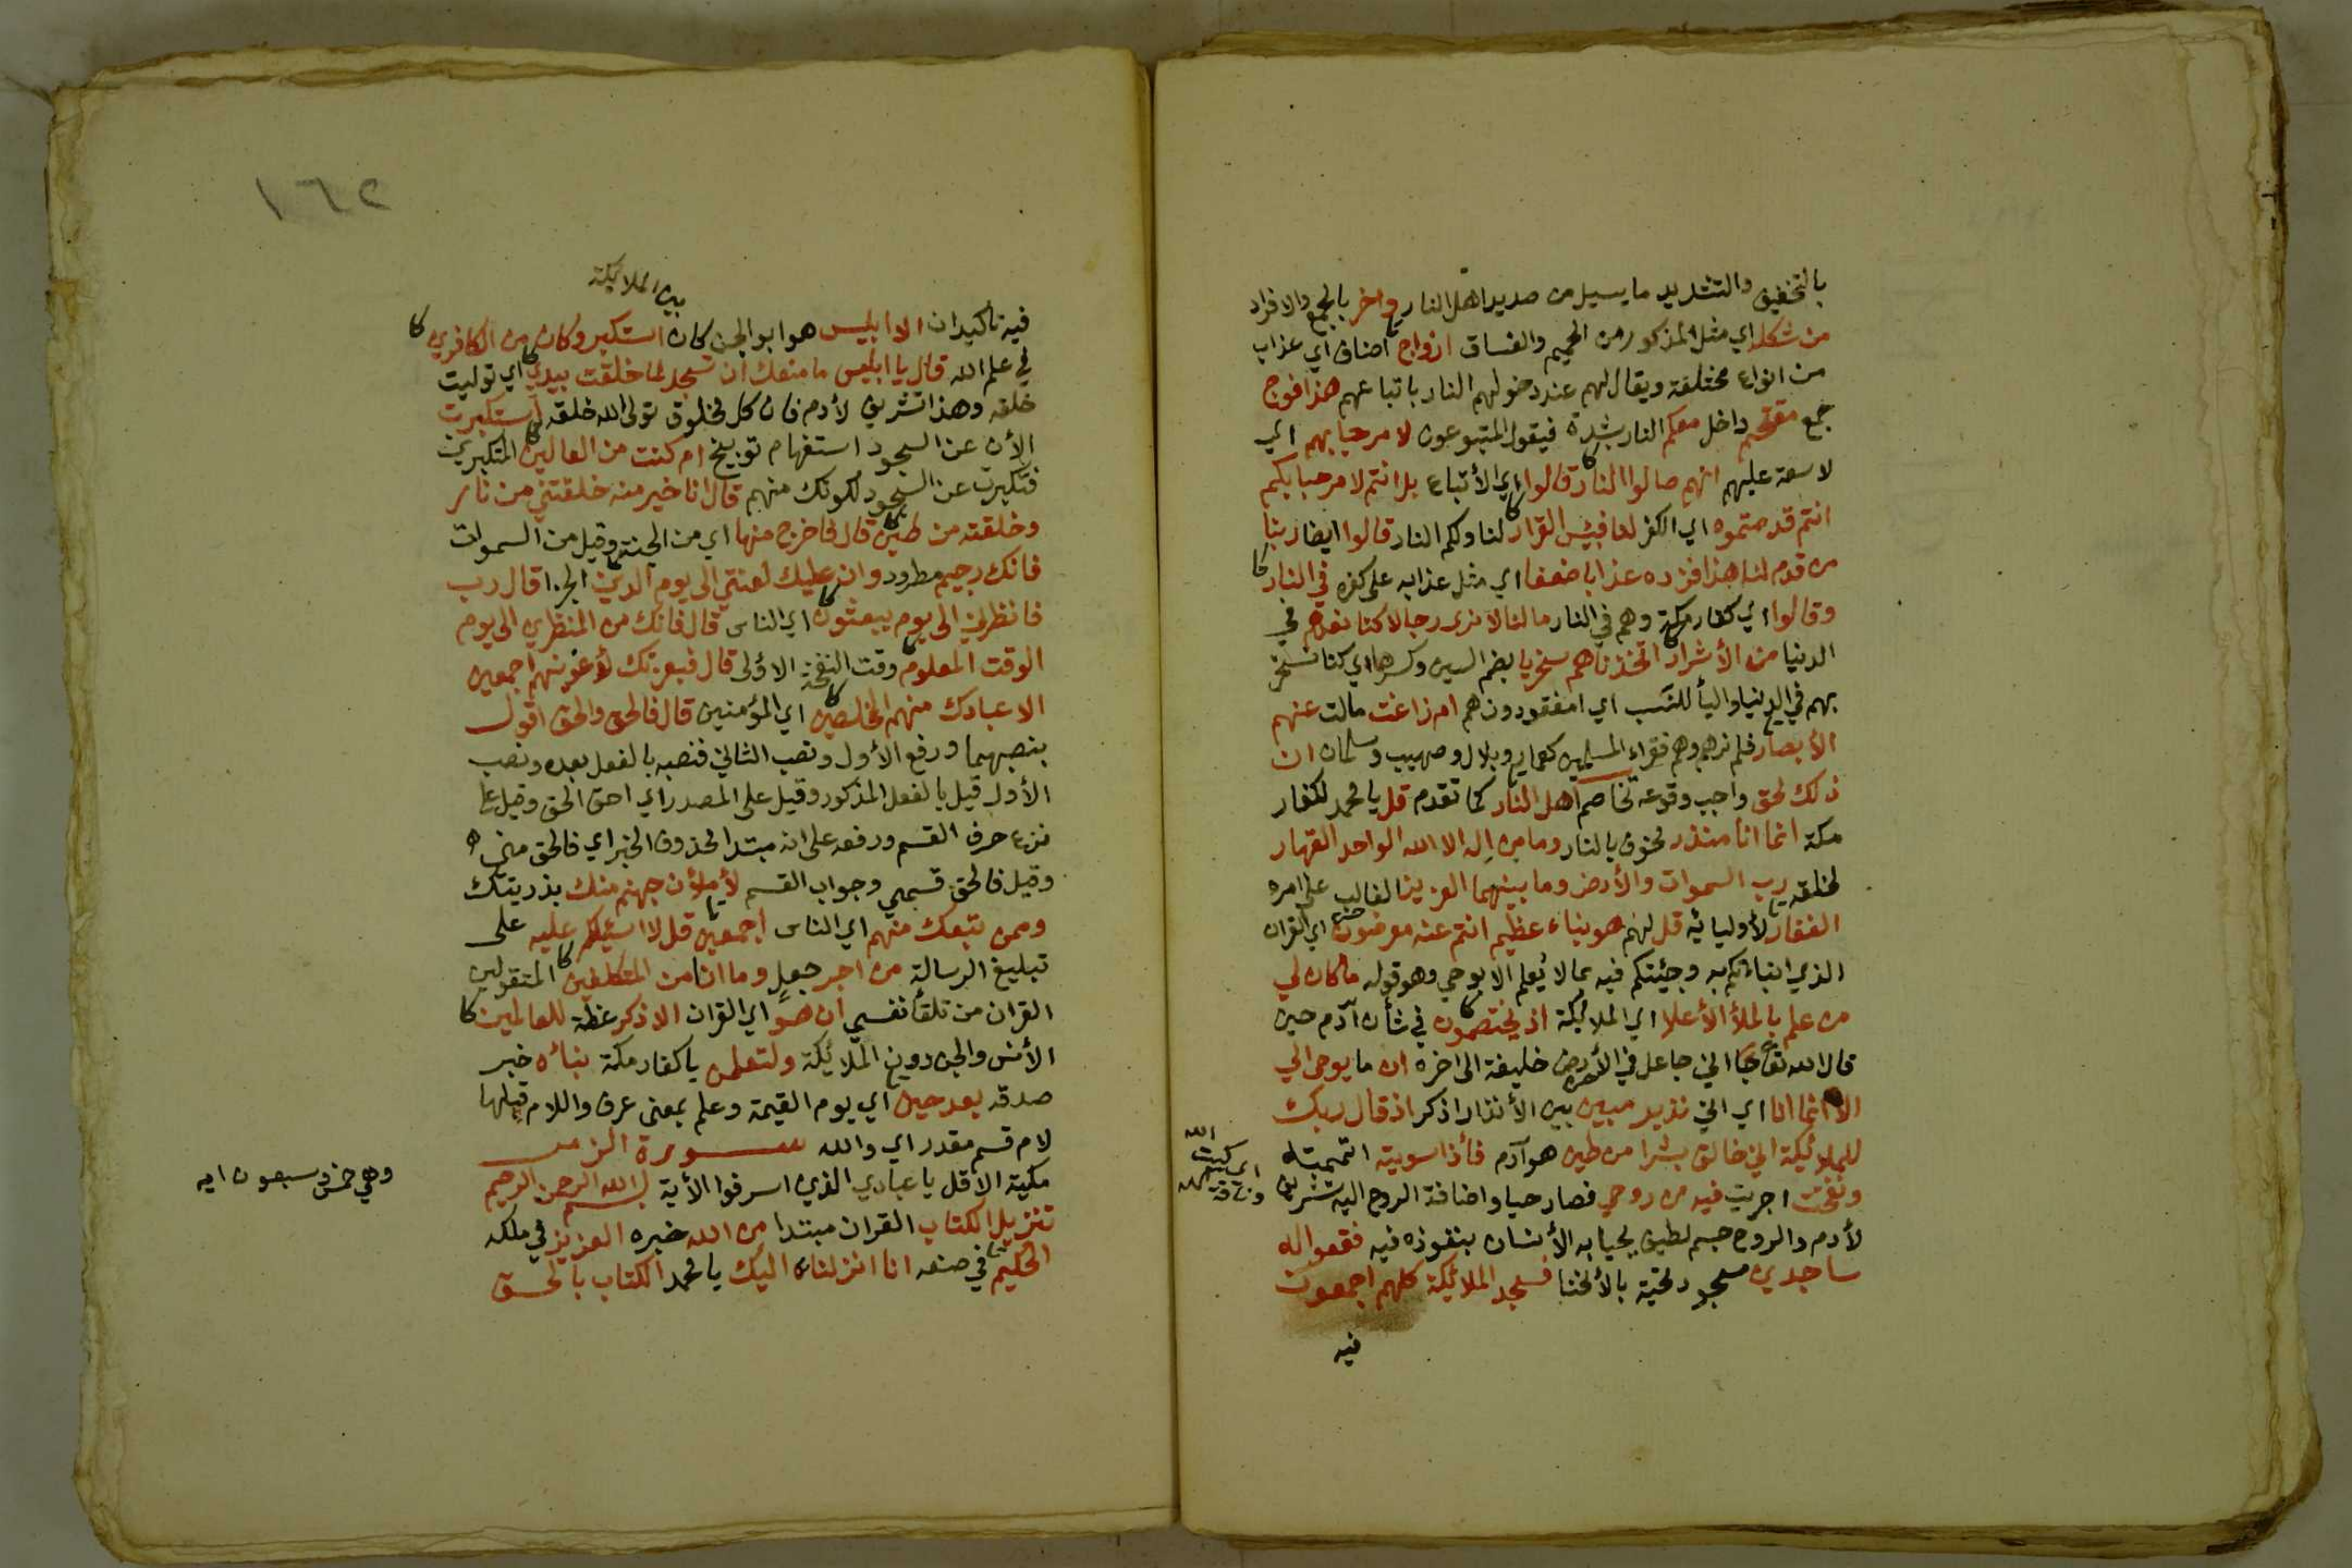 بالتخفيف والتشديد ما يسيل من صديد اهل النار واخر بالجمع والافراد
من شكله اي مثل المذكور من الحميم والغساق ازواج اصناف اي عذاب
من انواع مختلفة ويقال لهم عند دخولهم النار باتباعهم هذا فوج
جمع مقتحم داخل معكم النار بشدة فيقول المتبوعون لا مرحبا بهم اي
لا سعة عليهم انهم صالوا النار قالوا اي الأتباع بل انتم لا مرحبا بكم
انتم قدمتموه اي الكفر لنا فبئس القرار لنا ولكم النار قالوا ايضا ربنا
من قدم لنا هذا فزده عذابا ضعفا اي مثل عذابه على كفره في النار
وقالوا اي كفار مكة وهم في النار ما لنا لا نرى رجالا كنا نعدهم في
الدنيا من الأشرار اتخذناهم سخريا بضم السين وكسرها اي كنا نسخر
بهم في الدنيا واليأ للنسب اي امفقودون هم ام زاغت مالت عنهم
الأبصار فلم نرهم وهم فقراء المسلمين كعمار وبلال وصهيب وسلمان ان
ذلك لحق واجب وقوعه تخاصم اهل النار كما تقدم قل يا محمد لكفار
مكة انما انا منذر مخوف بالنار وما من إله الا الله الواحد القهار
لخلقه رب السموات والأرض وما بينهما العزيز الغالب على امره
الغفار لأوليائه قل لهم هو نباء عظيم انتم عنه معرضون اي القران
الذي انباءتكم به وجئتكم فيه بما لا يُعلم الا بوحي وهو قوله ما كان لي
من علم بالملأ الأعلا اي الملائكة اذ يختصمون في شأن آدم حين
قال الله تعا اني جاعل في الأرض خليفة الى اخره ان ما يوحى الي
الا انما انا اي اني نذير مبين بين الأنذار اذكر اذ قال ربك
للملائكة اني خالق بشرا من طين هو آدم فأذا سويته اتممته
ونفخت اجريت فيه من روحي فصار حيا واضافة الروح اليه تشريف
لأدم والروح جسم لطيف يحيا به الأنسان بنفوذه فيه فقعوا له
ساجدين سجود تحية بالأنحنا فسجد الملائكة كلهم اجمعون
فيه
١٦٢
بين الملائكة
فيه تأكيدان الا ابليس هو ابو الجن كان استكبر وكان من الكافرين
في علم الله قال يا ابليس ما منعك ان تسجد لما خلقت بيدي اي توليت
خلقه وهذا تشريف لأدم فان كل مخلوق تولى الله خلقه استكبرت
الأن عن السجود استفهام توبيخ ام كنت من العالين المتكبرين
فتكبرت عن السجود لكونك منهم قال انا خير منه خلقتني من نار
وخلقته من طين قال فاخرج منها اي من الجنة وقيل من السموات
فانك رجيم مطرود وان عليك لعنتي الى يوم الدين الجزا قال رب
فانظرني الى يوم يبعثون اي الناس قال فانك من المنظرين الى يوم
الوقت المعلوم وقت النفخة الأولى قال فبعزتك لأغوينهم اجمعين
الا عبادك منهم المخلصين اي المؤمنين قال فالحق والحق اقول
بنصبهما ورفع الأول ونصب الثاني فنصبه بالفعل بعده ونصب
الأول قيل بالفعل المذكور وقيل على المصدر اي احق الحق وقيل على
نزع حرف القسم ورفعه على انه مبتدا محذوف الخبر اي فالحق مني
وقيل فالحق قسمي وجواب القسم لأملأن جهنم منك بذريتك
وممن تبعك منهم اي الناس اجمعين قل لا اسئلكم عليه على
تبليغ الرسالة من اجر جعل وما انا من المتكلفين المتقولين
القران من تلقأ نفسي ان هو اي القران الا ذكر عظة للعالمين
الأنس والجن دون الملائكة ولتعلمن يا كفار مكة نبائه خبر
صدقه بعد حين اي يوم القيمة وعلم بمعنى عرف واللام قبلها
لام قسم مقدر اي والله سورة الزمر
مكية الا قل يا عبادي الذين اسرفوا الأية بسم الله الرحمن الرحيم
وهي خمس وسبعون ايه
تنزيل الكتاب القران مبتدا من الله خبره العزيز في ملكه
الحكيم في صنعه انا انزلناه اليك يا محمد الكتاب بالحق